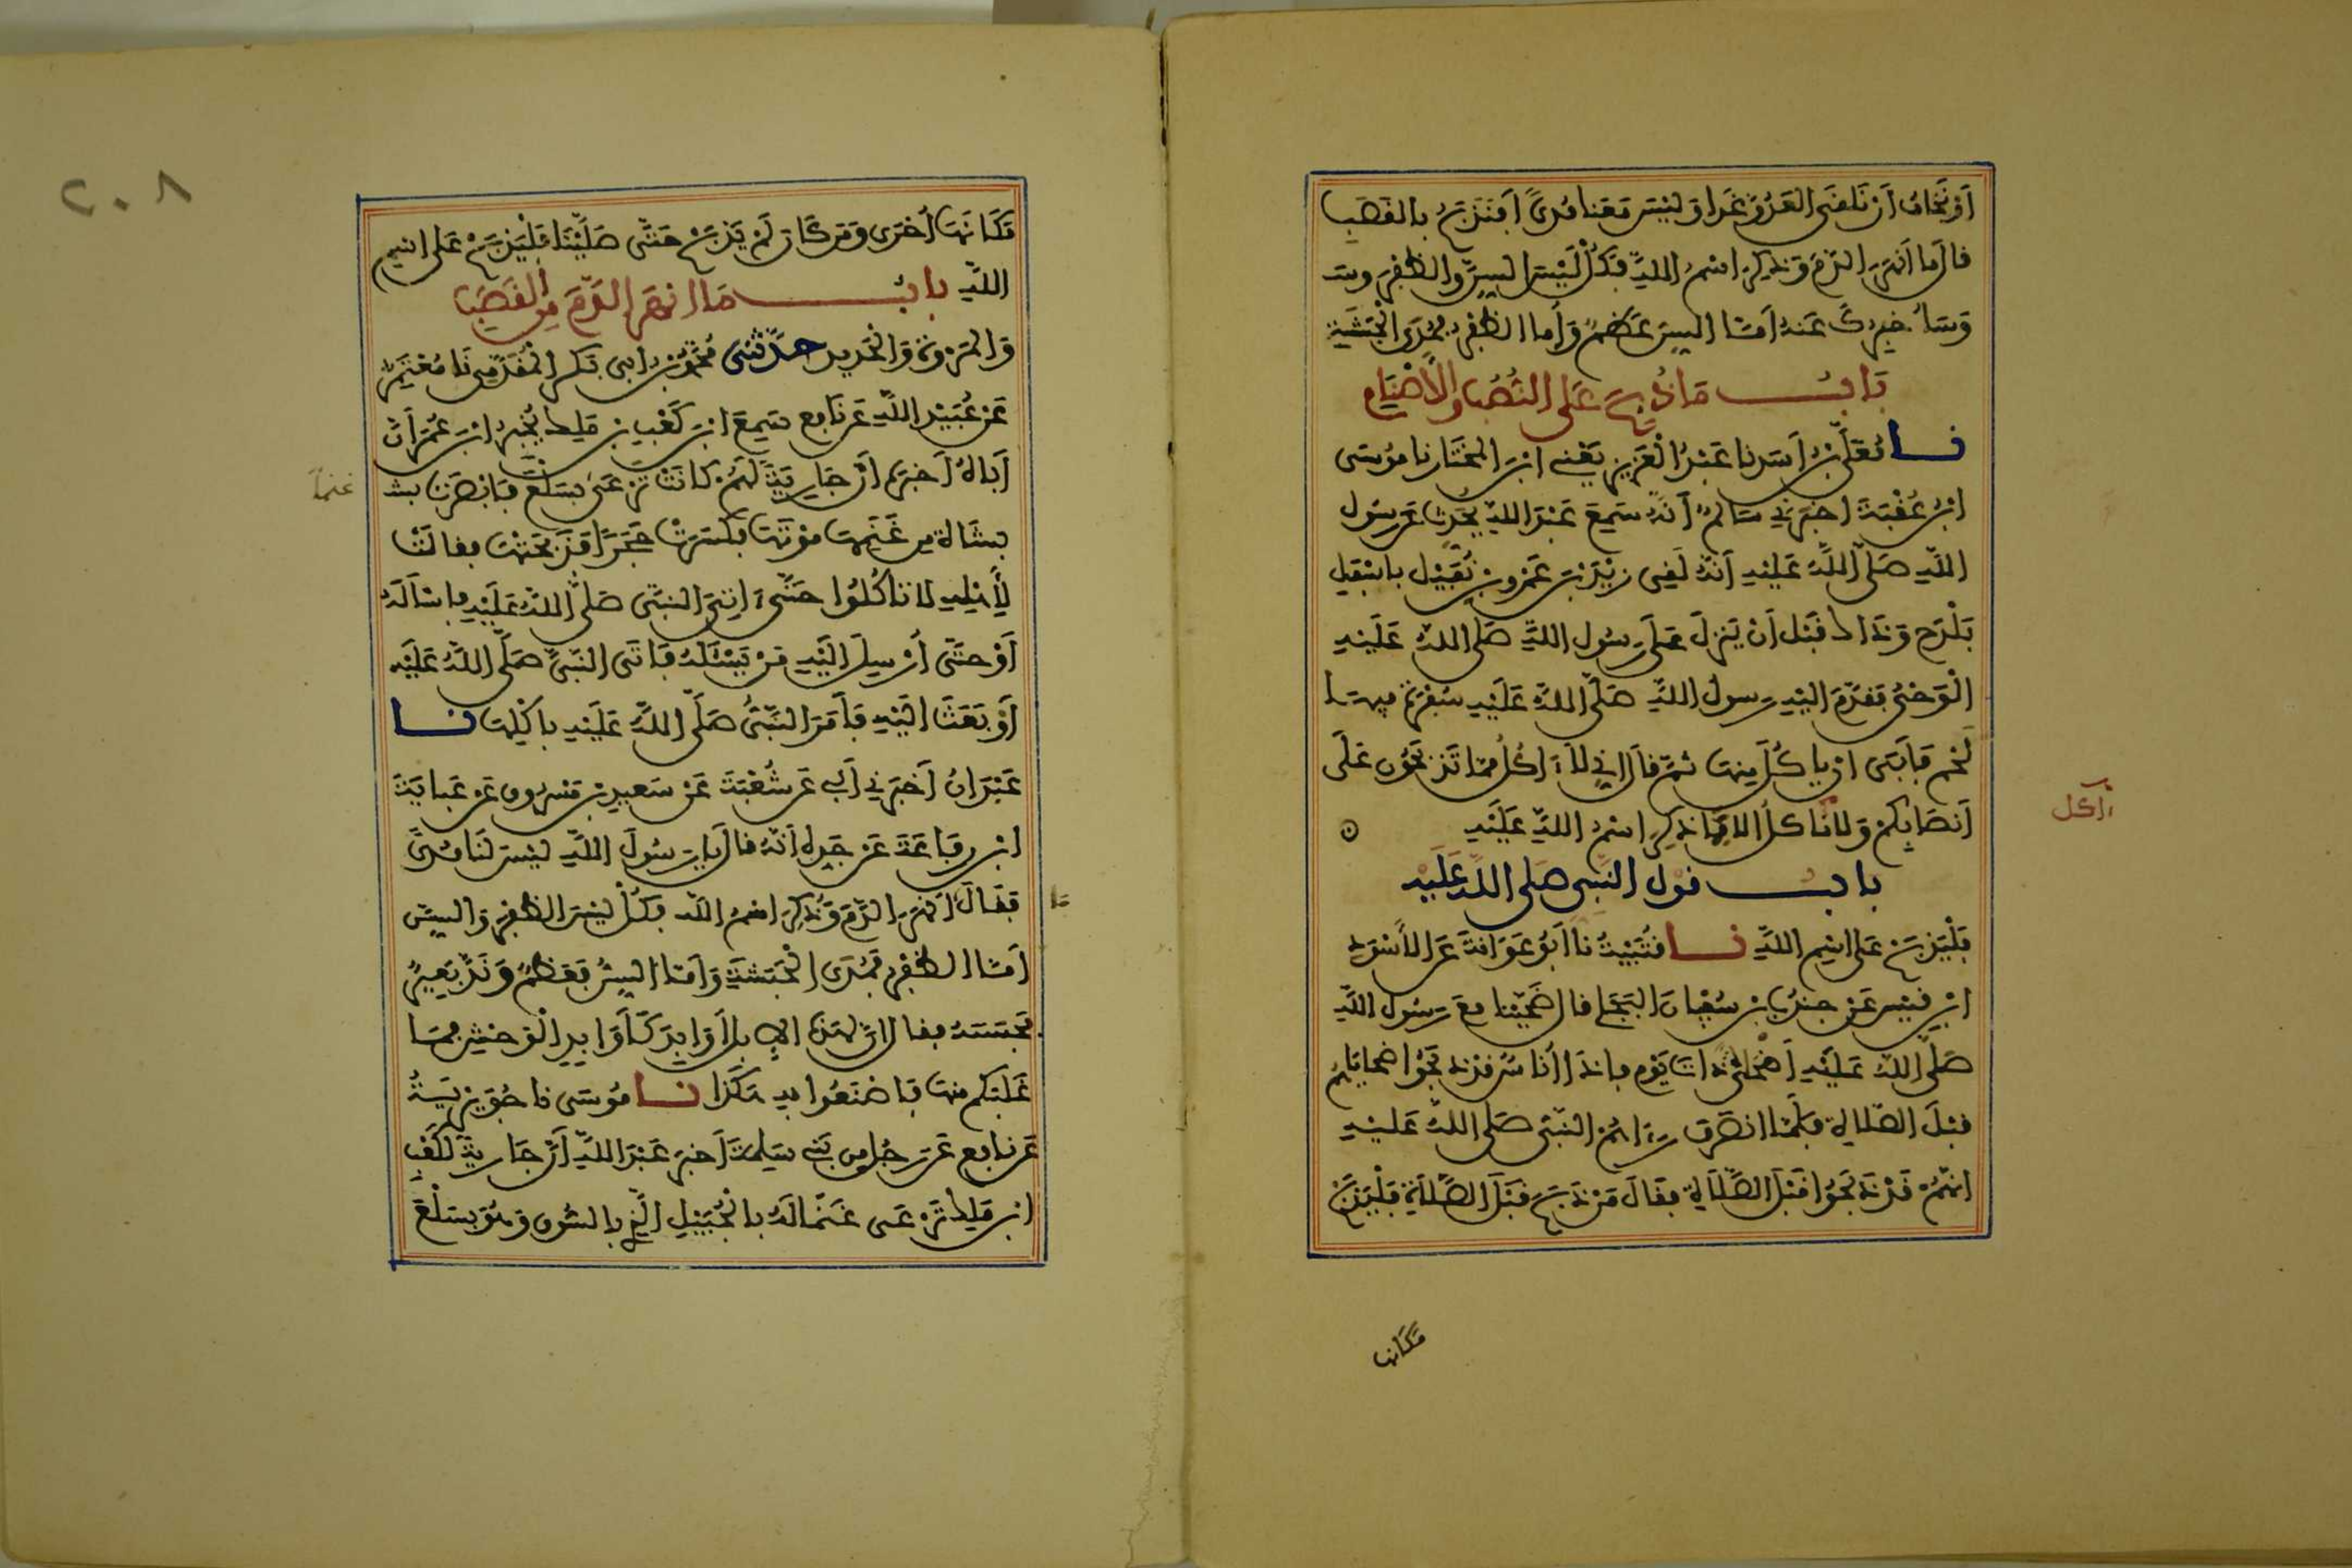 أو نخاف أن نلقى العدو غدا وليس معنا مدى أفنذبح بالقصب
قال ما أنهر الدم وذكر اسم الله فكل ليس السن والظفر وسـ
وسأخبرك عنه أما السن عظم وأما الظفر فمدى الحبشة
باب ما ذبح على النصب والأصنام
نا معلى بن أسد نا عبد العزيز يعني ابن المختار نا موسى
ابن عقبة أخبرني سالم أنه سمع عبد الله يحدث عن رسول
الله صلى الله عليه أنه لقي زيد بن عمرو بن نفيل بأسفل
بلدح وذاك قبل أن ينزل على رسول الله صلى الله عليه
الوحي فقدم إليه رسول الله صلى الله عليه سفرة فيها
لحم فأبى أن يأكل منها ثم قال إني لا آكل مما تذبحون على
أنصابكم ولا نأكل إلا مما ذكر اسم الله عليه
آكل
باب قول النبي صلى الله عليه
فليذبح على اسم الله نا قتيبة نا أبو عوانة عن الأسود
ابن قيس عن جندب بن سفيان البجلي قال ضحينا مع رسول الله
صلى الله عليه أضحى ذات يوم فإذا أناس قد ذبحوا ضحاياهم
قبل الصلاة فلما انصرف رءاهم النبي صلى الله عليه
أنهم قد ذبحوا قبل الصلاة فقال من ذبح قبل الصلاة فليذبح
مكانها
٢٠٨
مكانها أخرى ومن كان لم يذبح حتى صلينا فليذبح على اسم
الله باب ما أنهر الدم من القصب
والمروة والحديد حدثني محمد بن أبي بكر المقدمي نا معتمر
عن عبيد الله عن نافع سمع ابن كعب بن ملك يخبر ابن عمر أن
أباه أخبره أن جارية لهم كانت ترعى بسلع فأبصرت بشـ
غنما
بشاة من غنمها موتها فكسرت حجرا فذبحتها فقالت
لأهله لا تأكلوا حتى ءاتي النبي صلى الله عليه فأسأله
أو حتى أرسل إليه من يسئله فأتى النبي صلى الله عليه
أو بعث إليه فأمر النبي صلى الله عليه بأكلها نا
عبدان أخبرني أبي عن شعبة عن سعيد بن مسروق عن عباية
ابن رفاعة عن جده أنه قال يا رسول الله ليس لنا مدى
فقال ما أنهر الدم وذكر اسم الله فكل ليس الظفر والسن
أما الظفر فمدى الحبشة وأما السن فعظم وند بعير
فحبسه فقال إن لهذه الإبل أوابد كأوابد الوحش فما
غلبكم منها فاصنعوا به هكذا نا موسى نا جويرية
عن نافع عن رجل من بني سلمة أخبر عبد الله أن جارية لكعب
ابن ملك ترعى غنما له بالجبيل الذي بالسوق وهو بسلع